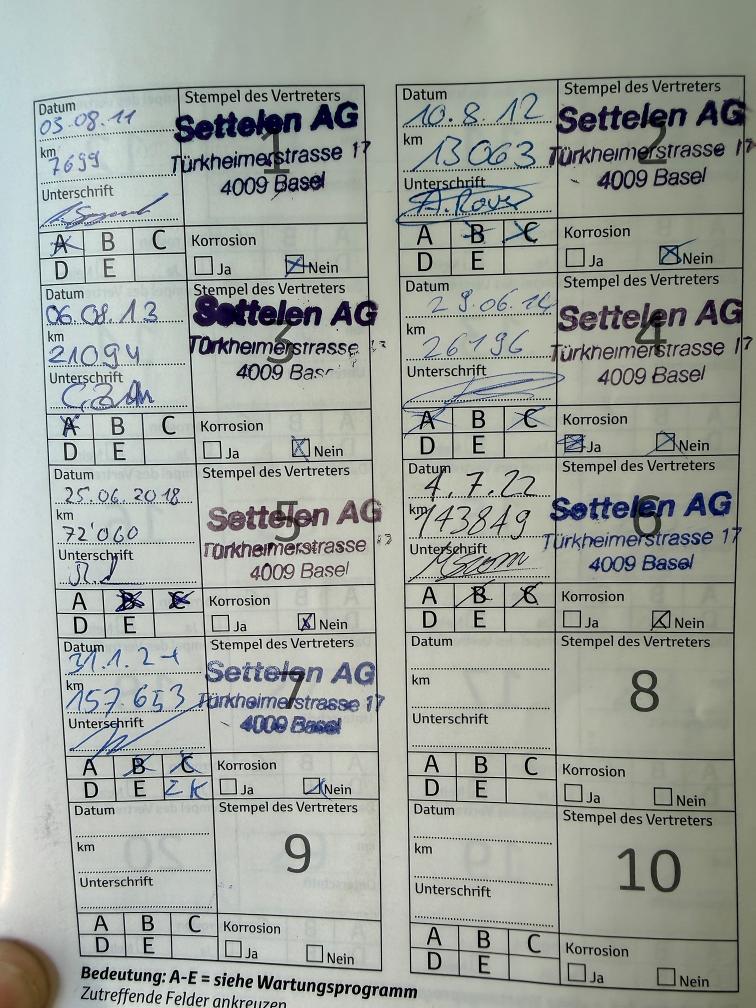 Datum
03.08.11
km
7699
Unterschrift
Stempel des Vertreters
Settelen AG
Türkheimerstrasse 17
4009 Basel
1
A B C
D E
Korrosion
Ja Nein
Datum
10.8.12
km
13063
Unterschrift
Stempel des Vertreters
Settelen AG
Türkheimerstrasse 17
4009 Basel
2
A B C
D E
Korrosion
Ja Nein
Datum
06.08.13
km
21094
Unterschrift
Stempel des Vertreters
Settelen AG
Türkheimerstrasse 17
4009 Basel
3
A B C
D E
Korrosion
Ja Nein
Datum
28.06.14
km
26196
Unterschrift
Stempel des Vertreters
Settelen AG
Türkheimerstrasse 17
4009 Basel
4
A B C
D E
Korrosion
Ja Nein
Datum
25.06.2018
km
72'060
Unterschrift
Stempel des Vertreters
Settelen AG
Türkheimerstrasse
4009 Basel
5
A B C
D E
Korrosion
Ja Nein
Datum
4.7.22
km
143849
Unterschrift
Stempel des Vertreters
Settelen AG
Türkheimerstrasse 17
4009 Basel
6
A B C
D E
Korrosion
Ja Nein
Datum
km
157.653
Unterschrift
Stempel des Vertreters
Settelen AG
Türkheimerstrasse 17
4009 Basel
7
A B C
D E ZK
Korrosion
Ja Nein
Datum
km
Unterschrift
Stempel des Vertreters
8
A B C
D E
Korrosion
Ja Nein
Datum
km
Unterschrift
Stempel des Vertreters
9
A B C
D E
Korrosion
Ja Nein
Datum
km
Unterschrift
Stempel des Vertreters
10
A B C
D E
Korrosion
Ja Nein
Bedeutung: A-E = siehe Wartungsprogramm
Zutreffende Felder ankreuzen